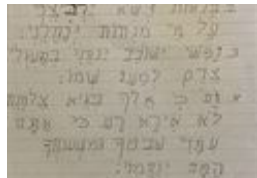 בנאות דשא
על מי מנחות ינהלני.
נפשי ישובב ינחני במעגלי
צדק למען שמו.
גם כי אלך בגיא צלמות
לא אירא רע כי אתה
עמדי שבטך ומשענתך
המה ינחמני.